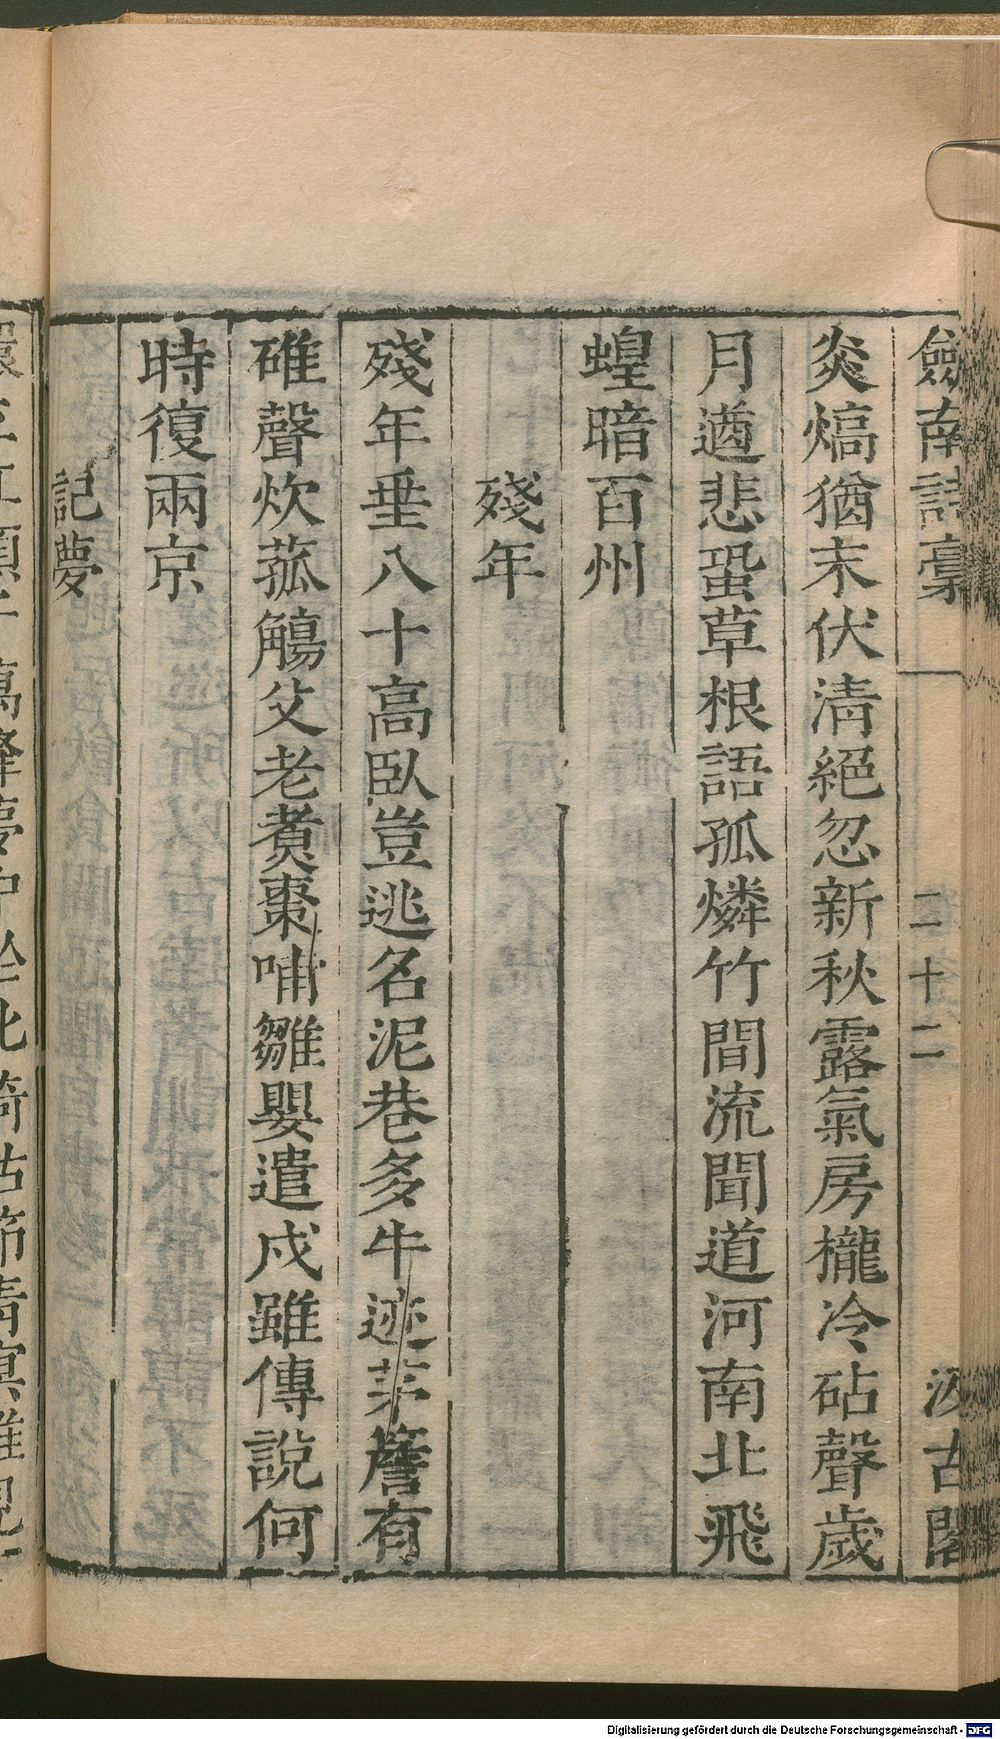 劍南詩稾 二十二 汲古閣
炎熇猶末伏淸絕忽新秋露氣房櫳冷砧聲歲
月遒悲蛩草根語孤燐竹間流聞道河南北飛
蝗暗百州
殘年
殘年垂八十高臥豈逃名泥巷多牛迹茅簷有
碓聲炊菰觴父老煑棗哺雛嬰遣戍雖傳說何
時復兩京
記夢
Digitalisierung gefördert durch die Deutsche Forschungsgemeinschaft - DFG